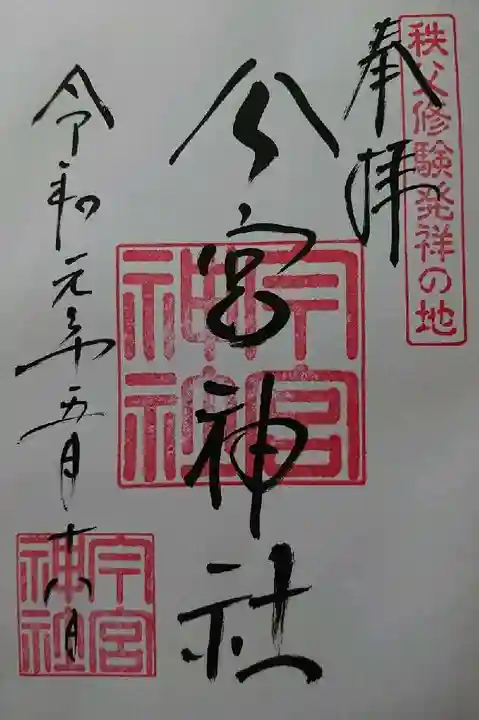 秩父修験発祥の地
奉拝
今宮神社
令和元年五月十六日
今宮神社
今宮神社